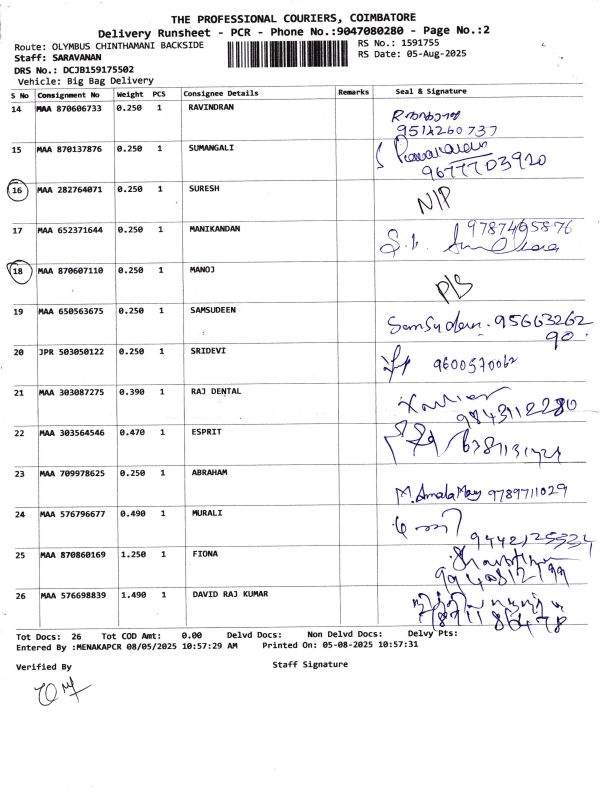 THE PROFESSIONAL COURIERS, COIMBATORE
Delivery Runsheet - PCR - Phone No.:9047080280 - Page No.:2
Route: OLYMBUS CHINTHAMANI BACKSIDE RS No.: 1591755
Staff: SARAVANAN RS Date: 05-Aug-2025
DRS No.: DCJB159175502
Vehicle: Big Bag Delivery
S No Consignment No Weight PCS Consignee Details Remarks Seal & Signature
14 MAA 870606733 0.250 1 RAVINDRAN
9514260737
15 MAA 870137876 0.250 1 SUMANGALI
9677703920
16 MAA 282764071 0.250 1 SURESH N/P
17 MAA 652371644 0.250 1 MANIKANDAN 9787495876
18 MAA 870607110 0.250 1 MANOJ P/B
19 MAA 650563675 0.250 1 SAMSUDEEN Samsudeen. 95663262
90.
20 JPR 503050122 0.250 1 SRIDEVI 9600570062
21 MAA 303087275 0.390 1 RAJ DENTAL Xavier
9843112280
22 MAA 303564546 0.470 1 ESPRIT
23 MAA 709978625 0.250 1 ABRAHAM M. Amala Mary 9789711029
24 MAA 576796677 0.490 1 MURALI
25 MAA 870860169 1.250 1 FIONA
26 MAA 576698839 1.490 1 DAVID RAJ KUMAR
Tot Docs: 26 Tot COD Amt: 0.00 Delvd Docs: Non Delvd Docs: Delvy Pts:
Entered By :MENAKAPCR 08/05/2025 10:57:29 AM Printed On: 05-08-2025 10:57:31
Verified By Staff Signature